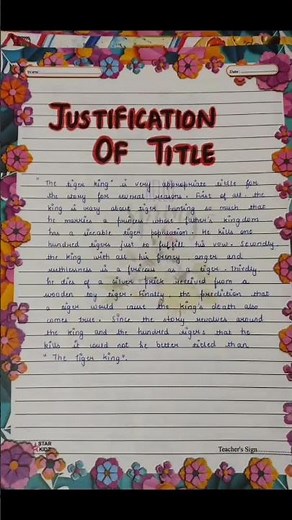 Date:
JUSTIFICATION
OF TITLE
"The tiger king" is very appropriate title for
the story for several reasons. First of all, the
king is crazy about tiger hunting so much that
he marries a princess whose father's kingdom
has a sizeable tiger population. He kills one
hundred tigers just to fulfill his vow. Secondly
the king with all his frenzy anger and
ruthlessness is a ferocious as a tiger. Thirdly
he dies of a silver prick received from a
wooden toy tiger. Finally the prediction that
a tiger would cause the king's death also
comes true. Since the story revolves around
the king and the hundred tigers that he
kills it could not be better titled than
"The tiger king".
STAR
KIDZ
Teacher's Sign